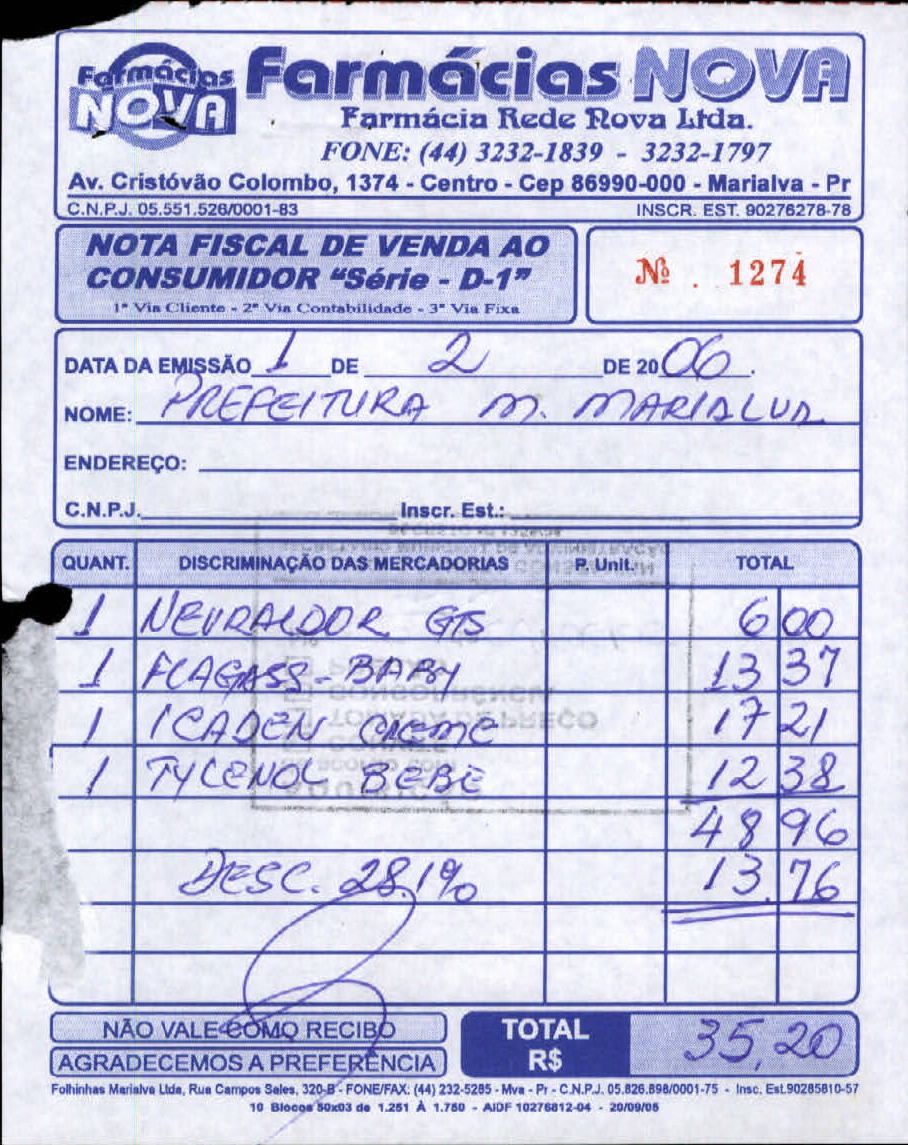 Farmácias NOVA
Farmácias NOVA
Farmácia Rede Nova Ltda.
FONE: (44) 3232-1839 - 3232-1797
Av. Cristóvão Colombo, 1374 - Centro - Cep 86990-000 - Marialva - Pr
C.N.P.J. 05.551.526/0001-83 INSCR. EST. 90276278-78
NOTA FISCAL DE VENDA AO
CONSUMIDOR "Série - D-1"
1ª Via Cliente - 2ª Via Contabilidade - 3ª Via Fixa
Nº. 1274
DATA DA EMISSÃO 1 DE 2 DE 2006.
NOME: PREFEITURA M. MARIALVA
ENDEREÇO:
C.N.P.J. Inscr. Est.:
QUANT. DISCRIMINAÇÃO DAS MERCADORIAS P. Unit. TOTAL
1 NEVRALDOR GTS 6 00
1 FLAGASS-BABY 13 37
1 ICADEN CREME 17 21
1 TYLENOL BEBE 12 38
48 96
DESC. 28.1% 13.76
NÃO VALE COMO RECIBO
AGRADECEMOS A PREFERÊNCIA
TOTAL
R$ 35,20
Folhinhas Marialva Ltda, Rua Campos Sales, 320-B - FONE/FAX: (44) 232-5285 - Mva - Pr - C.N.P.J. 05.826.898/0001-75 - Insc. Est.90285810-57
10 Blocos 50x03 de 1.251 À 1.750 - AIDF 10276812-04 - 20/09/05